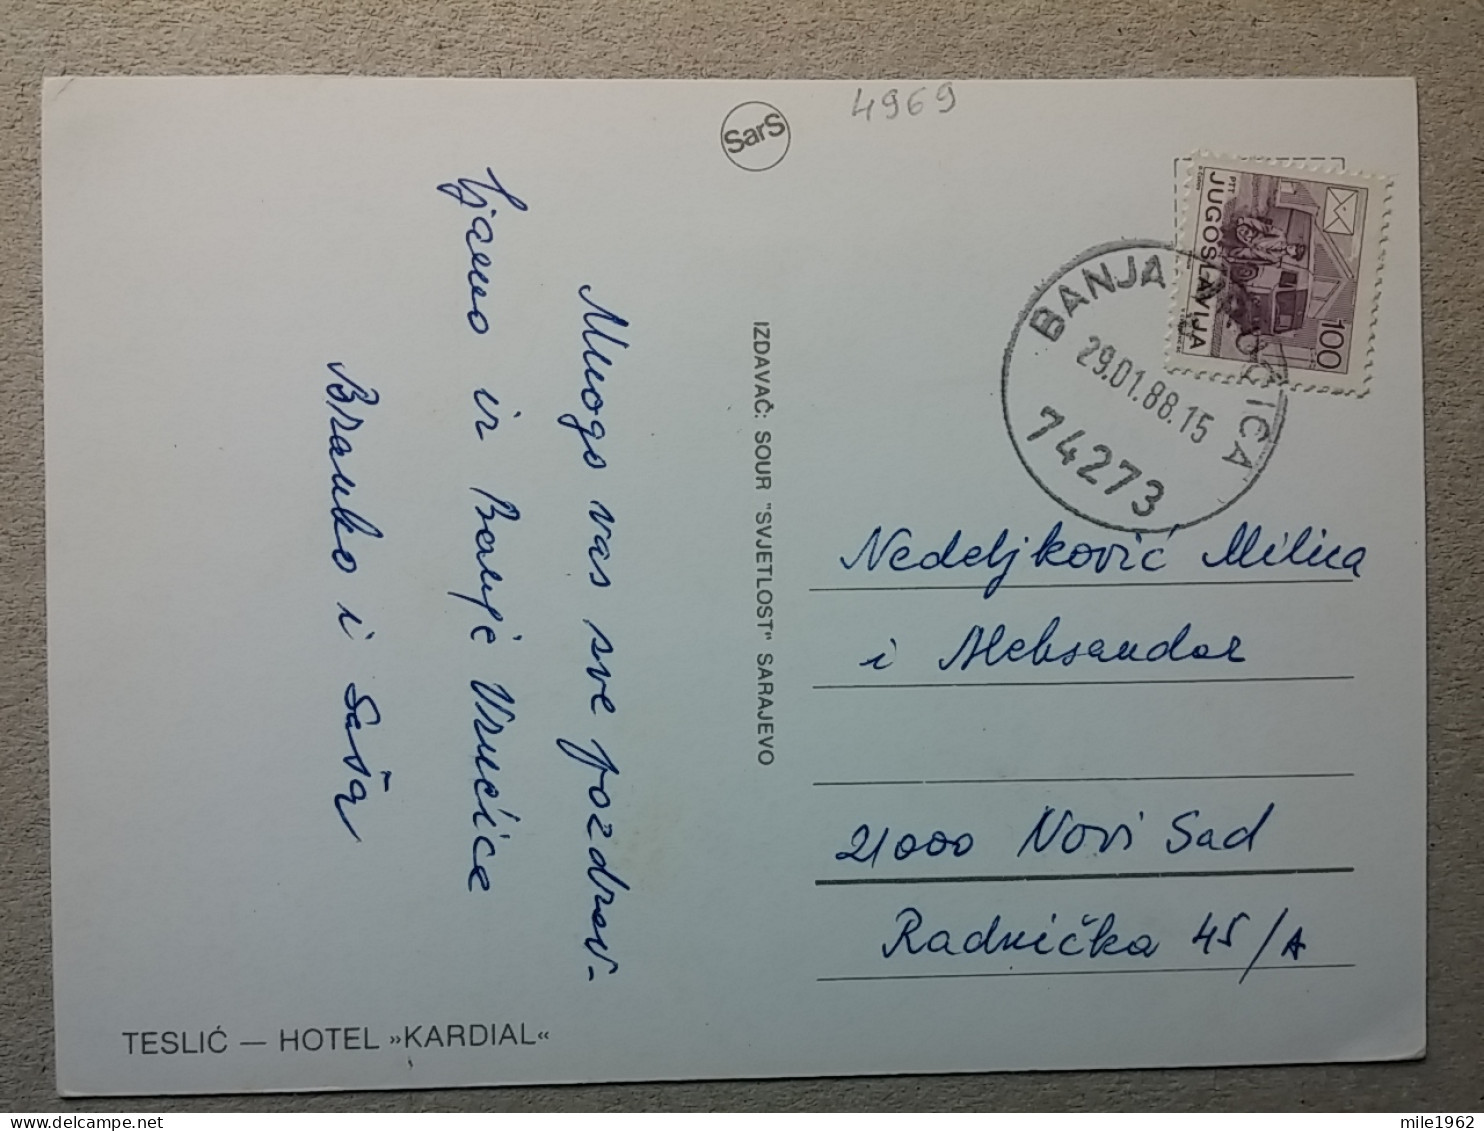 4969
SarS
PTT
JUGOSLAVIJA
100
BANJA VRUĆICA
29.01.88.15
74273
Mnogo vas sve pozdrav-
ljamo iz Banje Vrućice
Branko i Saša
IZDAVAČ: SOUR "SVJETLOST" SARAJEVO
Nedeljković Milica
i Aleksandar
21000 Novi Sad
Radnička 45/A
TESLIĆ — HOTEL »KARDIAL«
mile1962